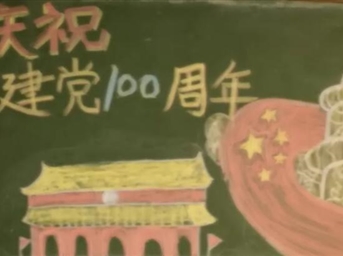 庆祝
建党100周年